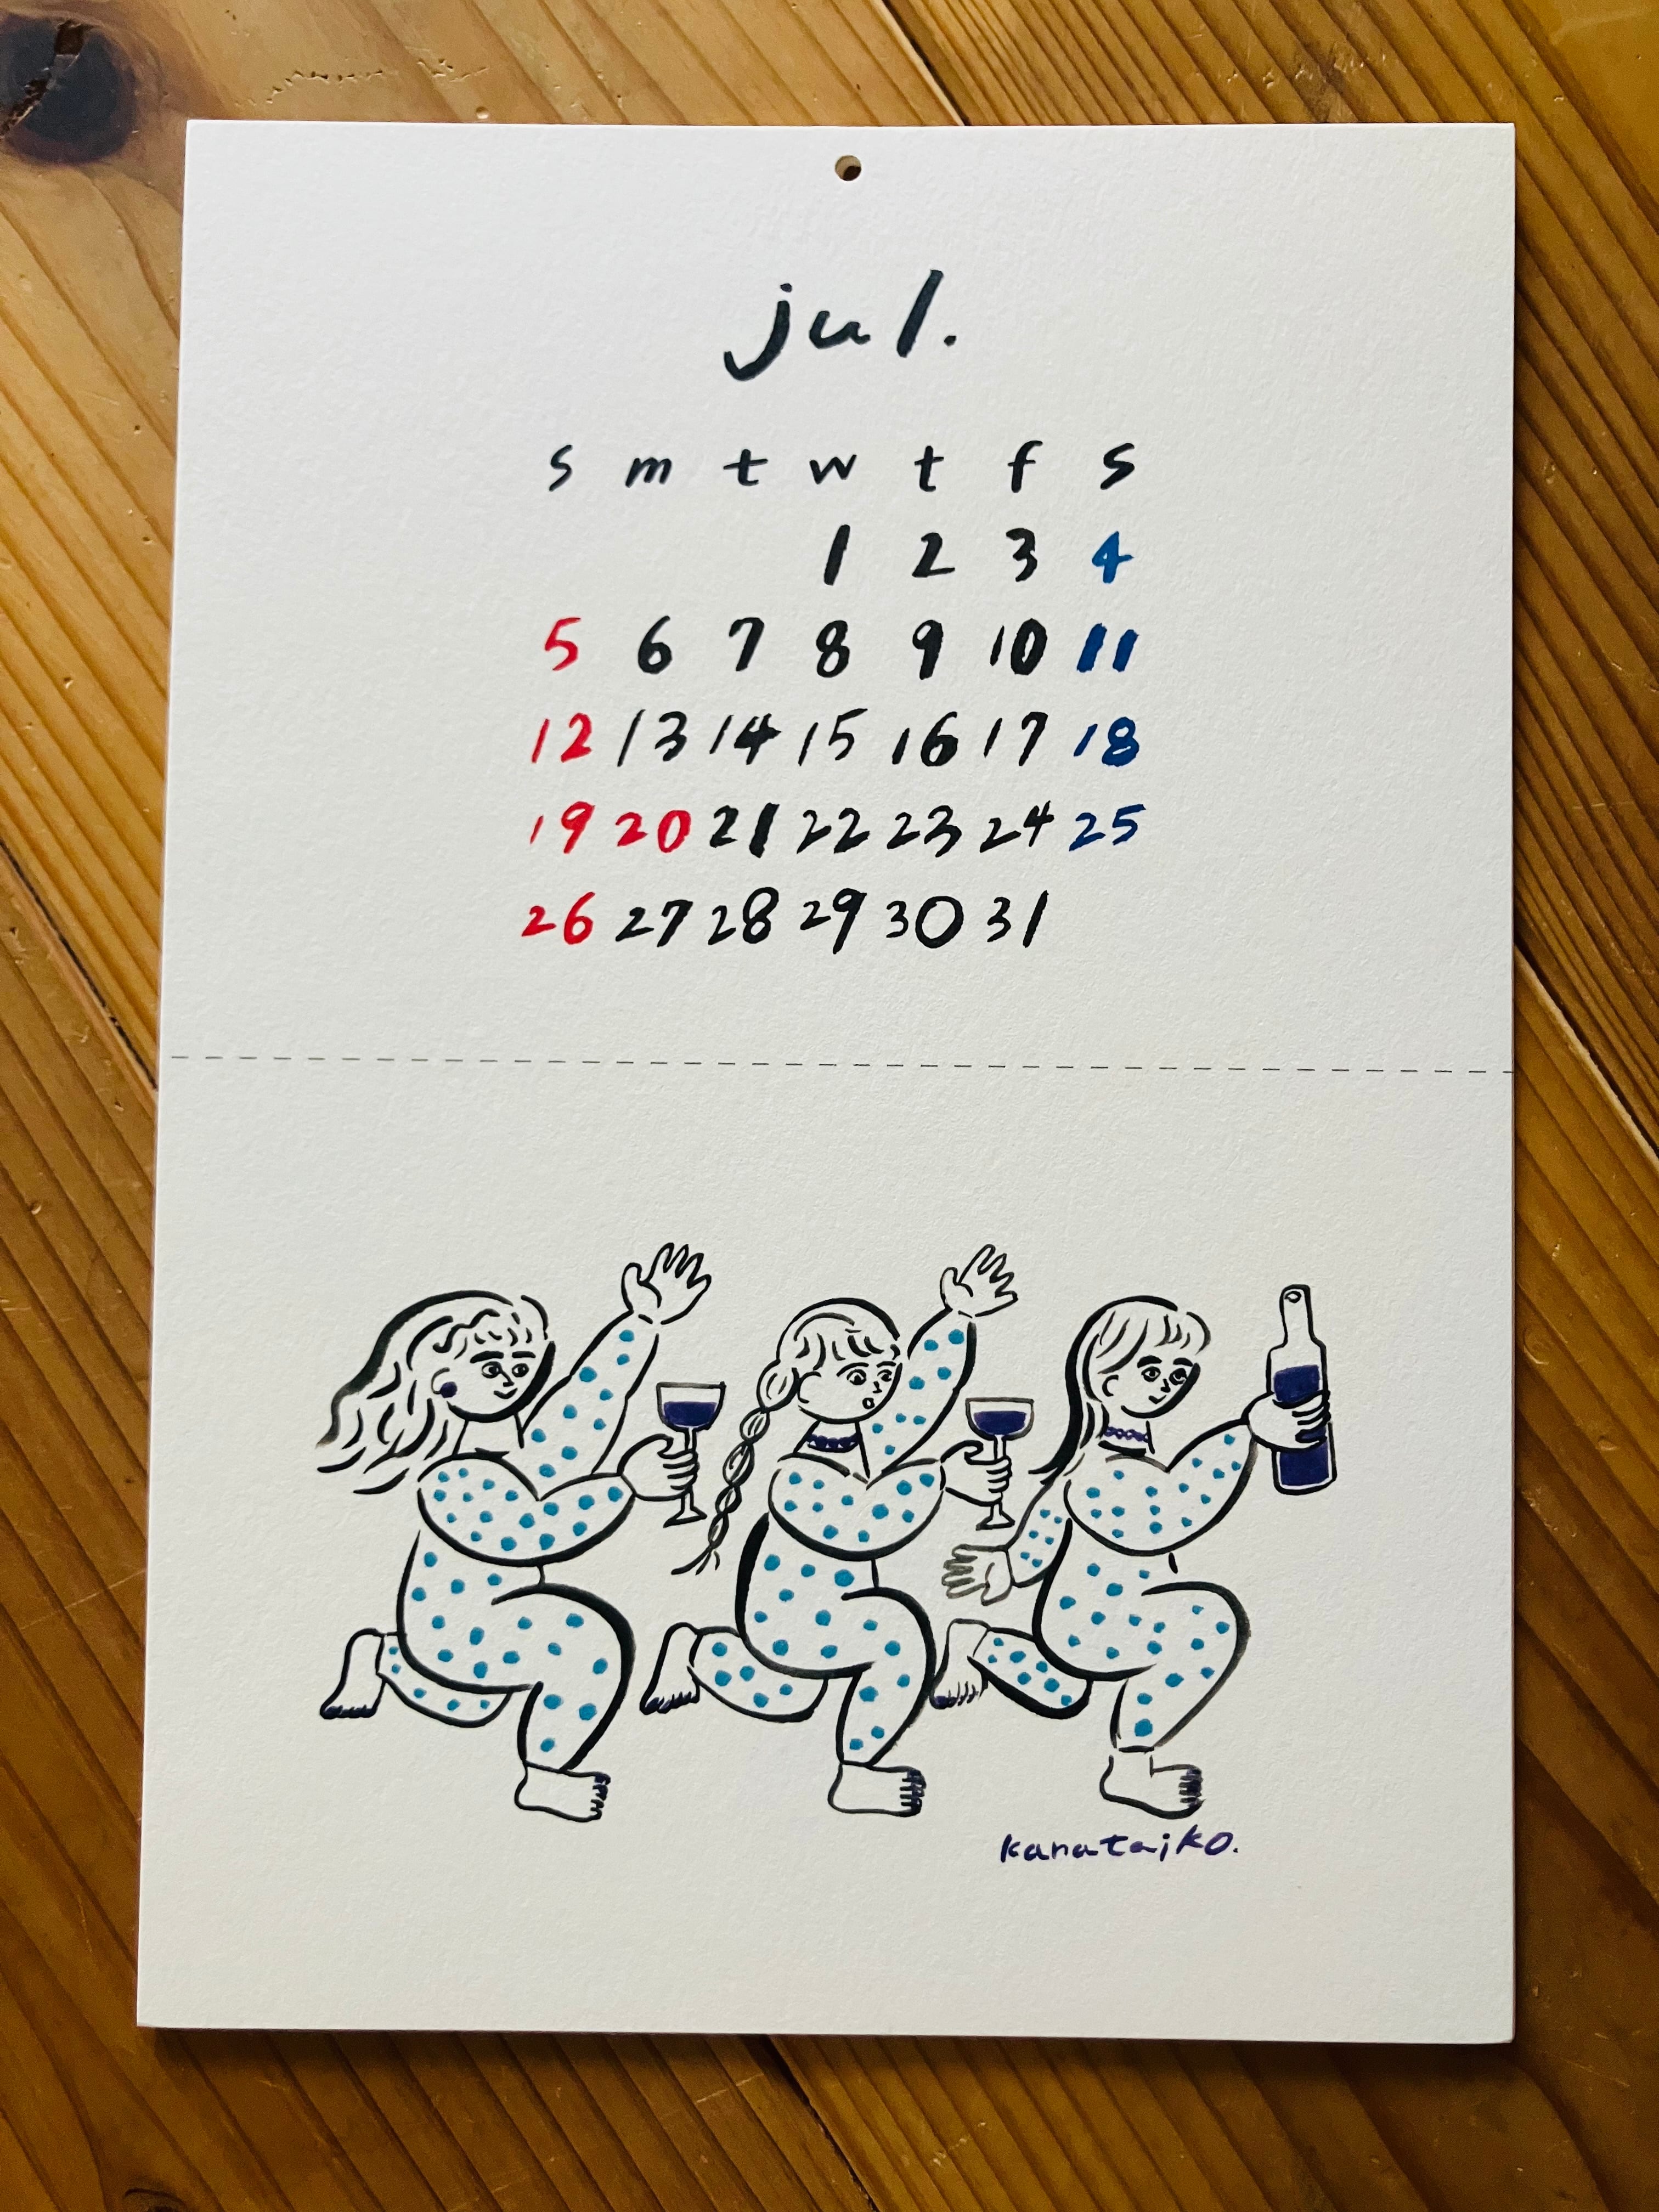 jul.
s m t w t f s
1 2 3 4
5 6 7 8 9 10 11
12 13 14 15 16 17 18
19 20 21 22 23 24 25
26 27 28 29 30 31
kanataiko.